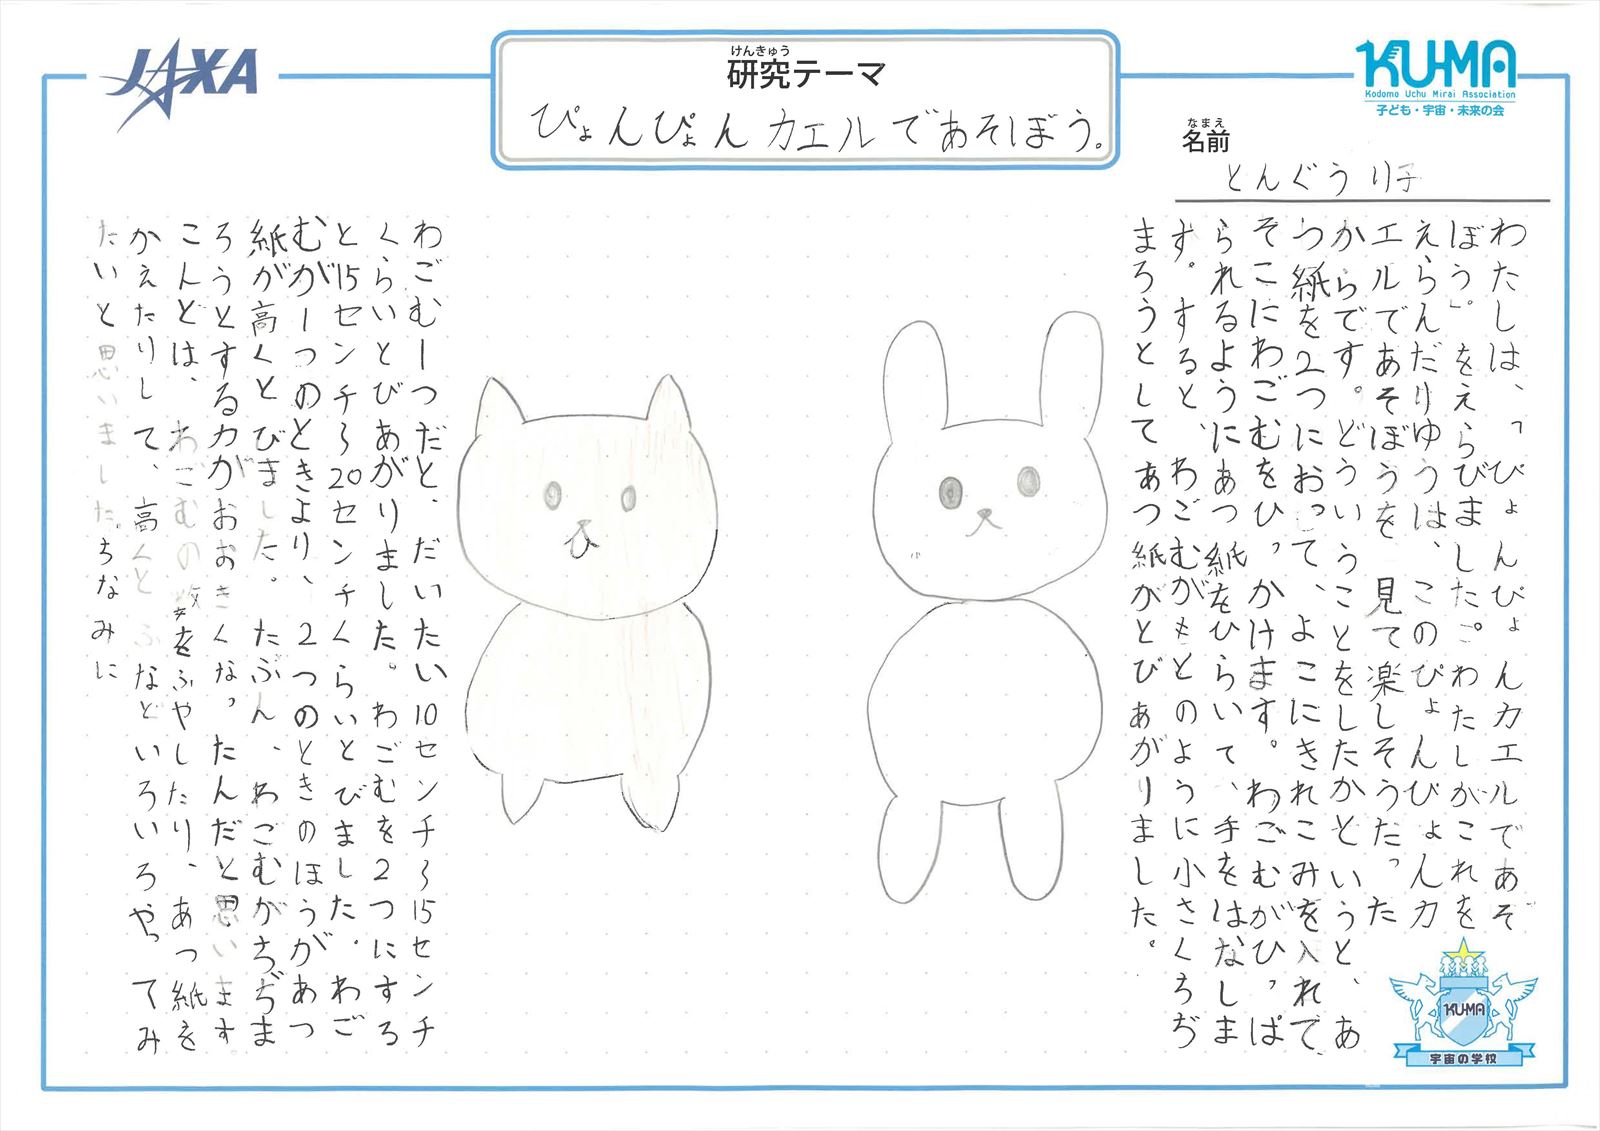 JAXA
けんきゅう
研究テーマ
ぴょんぴょんカエルであそぼう。
KU-MA
Kodomo Uchu Mirai Association
子ども・宇宙・未来の会
なまえ
名前
とんぐうり子
わたしは、「ぴょんぴょんカエルであそ
ぼう」をえらびました。わたしがこれを
えらんだりゆうは、このぴょんぴょんカ
エルであそぼうを見て楽しそうだった
からです。どういうことをしたかというと、あ
つ紙を2つにおって、よこにきれこみを入れて、
そこにわごむをひっかけます。わごむがひっぱ
られるようにあつ紙をひらいて、手をはなしま
す。すると、わごむがもとのように小さくちぢ
まろうとしてあつ紙がとびあがりました。
わごむ一つだと、だいたい10センチ〜15センチ
くらいとびあがりました。わごむを2つにする
と15センチ〜20センチくらいとびました。わご
むが一つのときより、2つのときのほうがあつ
紙が高くとびました。たぶん、わごむがちぢま
ろうとする力がおおきくなったんだと思います。
こんどは、わごむの数をふやしたり、あつ紙を
かえたりして、高くとぶなどいろいろやってみ
たいと思いました。ちなみに
KU-MA
宇宙の学校